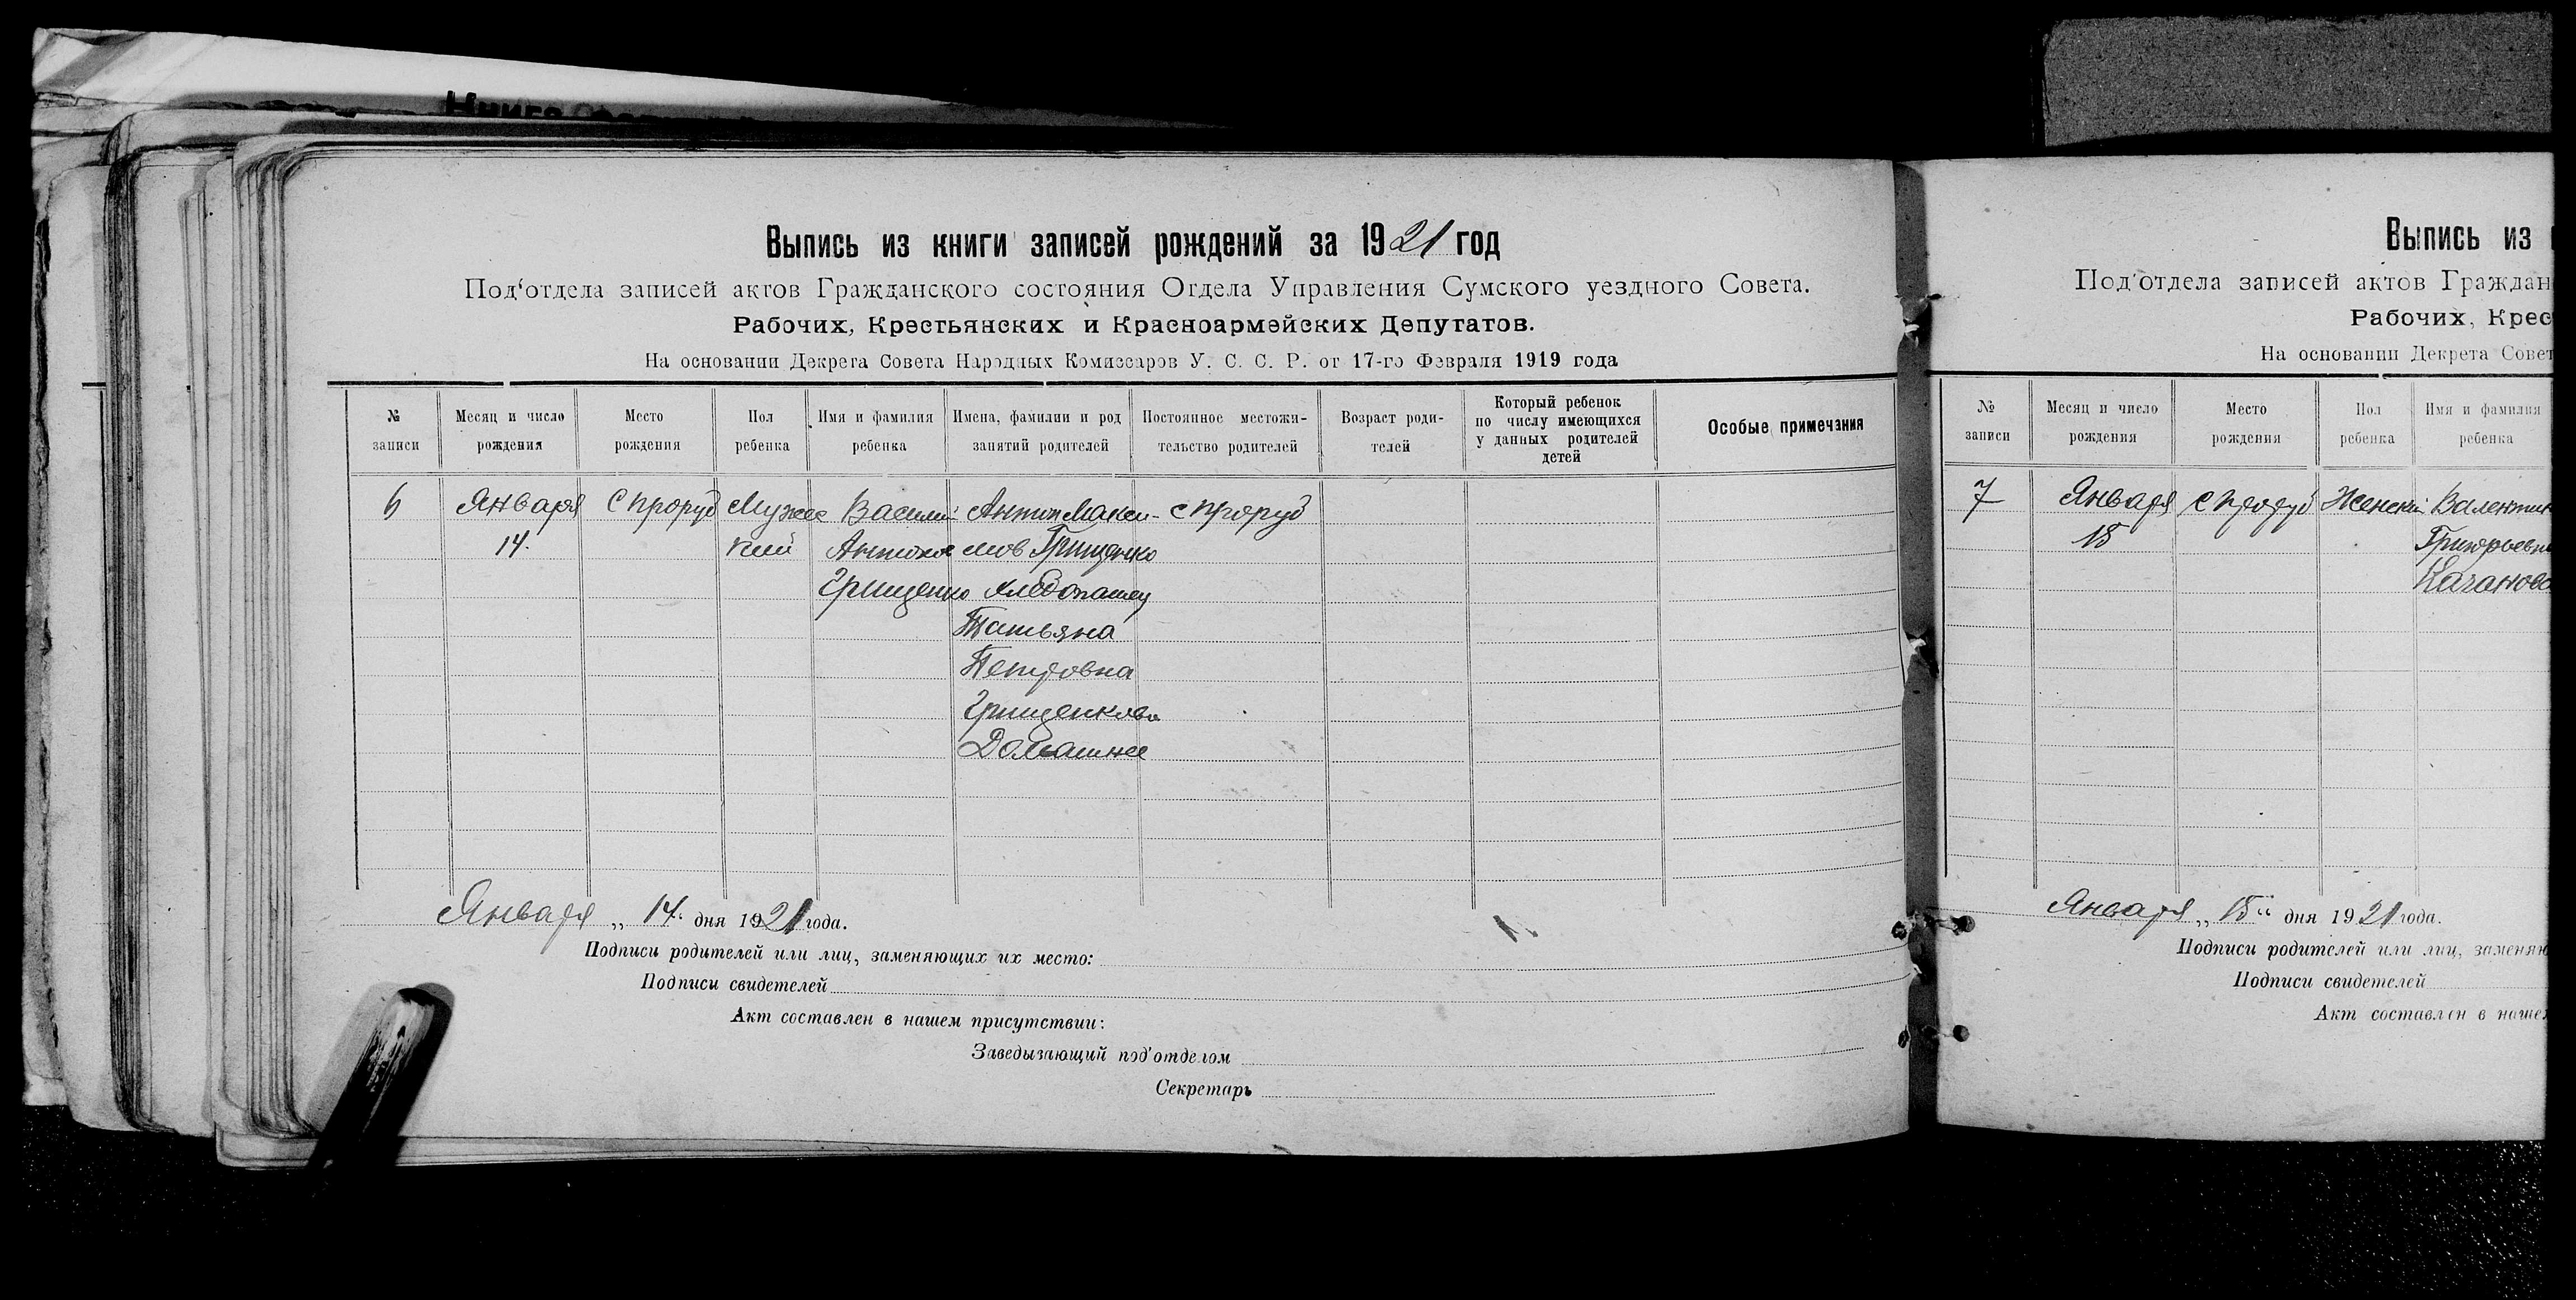 Выпись из книги записей рождений за 1921 год
Под'отдела записей актов Гражданского состояния Отдела Управления Сумского уездного Совета.
Рабочих, Крестьянских и Красноармейских Депутатов.
На основании Декрета Совета Народных Комиссаров У. С. С. Р. от 17-го Февраля 1919 года
№ записи
Месяц и число рождения
Место рождения
Пол ребенка
Имя и фамилия ребенка
Имена, фамилии и род занятий родителей
Постоянное местожи-тельство родителей
Возраст роди-телей
Который ребенок по числу имеющихся у данных родителей детей
Особые примечания
6 Января С Проруб Мужес Василий Антип Макси- с Проруб
14. кий мов Грищенко
Грищенко Хлебопашец
Татьяна
Петровна
Грищенкова
Домашнее
Января „ 14. дня 1921 года.
Подписи родителей или лиц, заменяющих их место:
Подписи свидетелей
Акт составлен в нашем присутствии:
Заведывающий под'отделом
Секретарь
Выпись из
Под'отдела записей актов Граждан
Рабочих, Крес
На основании Декрета Совет
№ записи
Месяц и число рождения
Место рождения
Пол ребенка
Имя и фамилия ребенка
7 Января с Проруб Женский Валентин
15 Григорьевн
Качанова
Января „ 15 " дня 1921 года.
Подписи родителей или лиц, заменяю
Подписи свидетелей
Акт составлен в наше